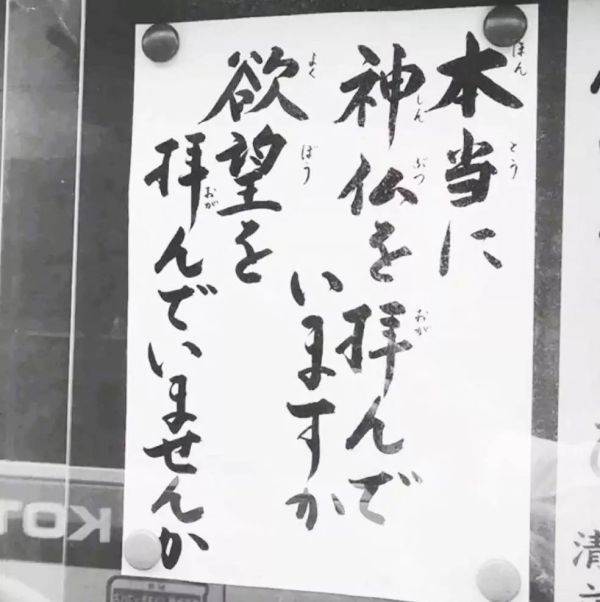 本当に
神仏を拝んで
いますか
欲望を
拝んでいませんか
ほん
とう
しん
ぶつ
おが
よく
ぼう
おが
清
KOT